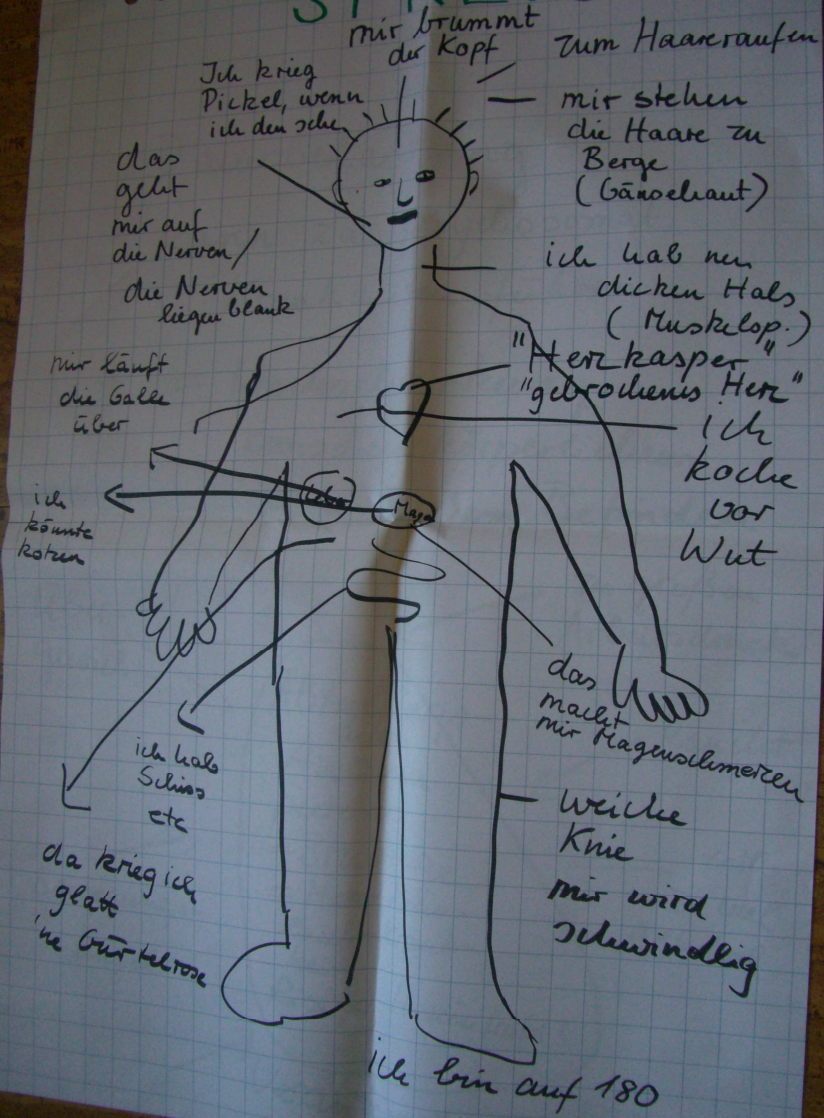 mir brummt
der Kopf
zum Haareraufen
Ich krieg
Pickel, wenn
ich den sehe
mir stehen
die Haare zu
Berge
(Gänsehaut)
das
geht
mir auf
die Nerven/
die Nerven
liegen blank
ich hab nen
dicken Hals
(Muskelsp.)
"Herzkasper"
"gebrochenes Herz"
mir läuft
die Galle
über
ich
koche
vor
Wut
Leber
Magen
ich
könnte
kotzen
das
macht
mir Magenschmerzen
ich hab
Schiss
etc
weiche
Knie
mir wird
schwindlig
da krieg ich
glatt
'ne Gürtelrose
ich bin auf 180